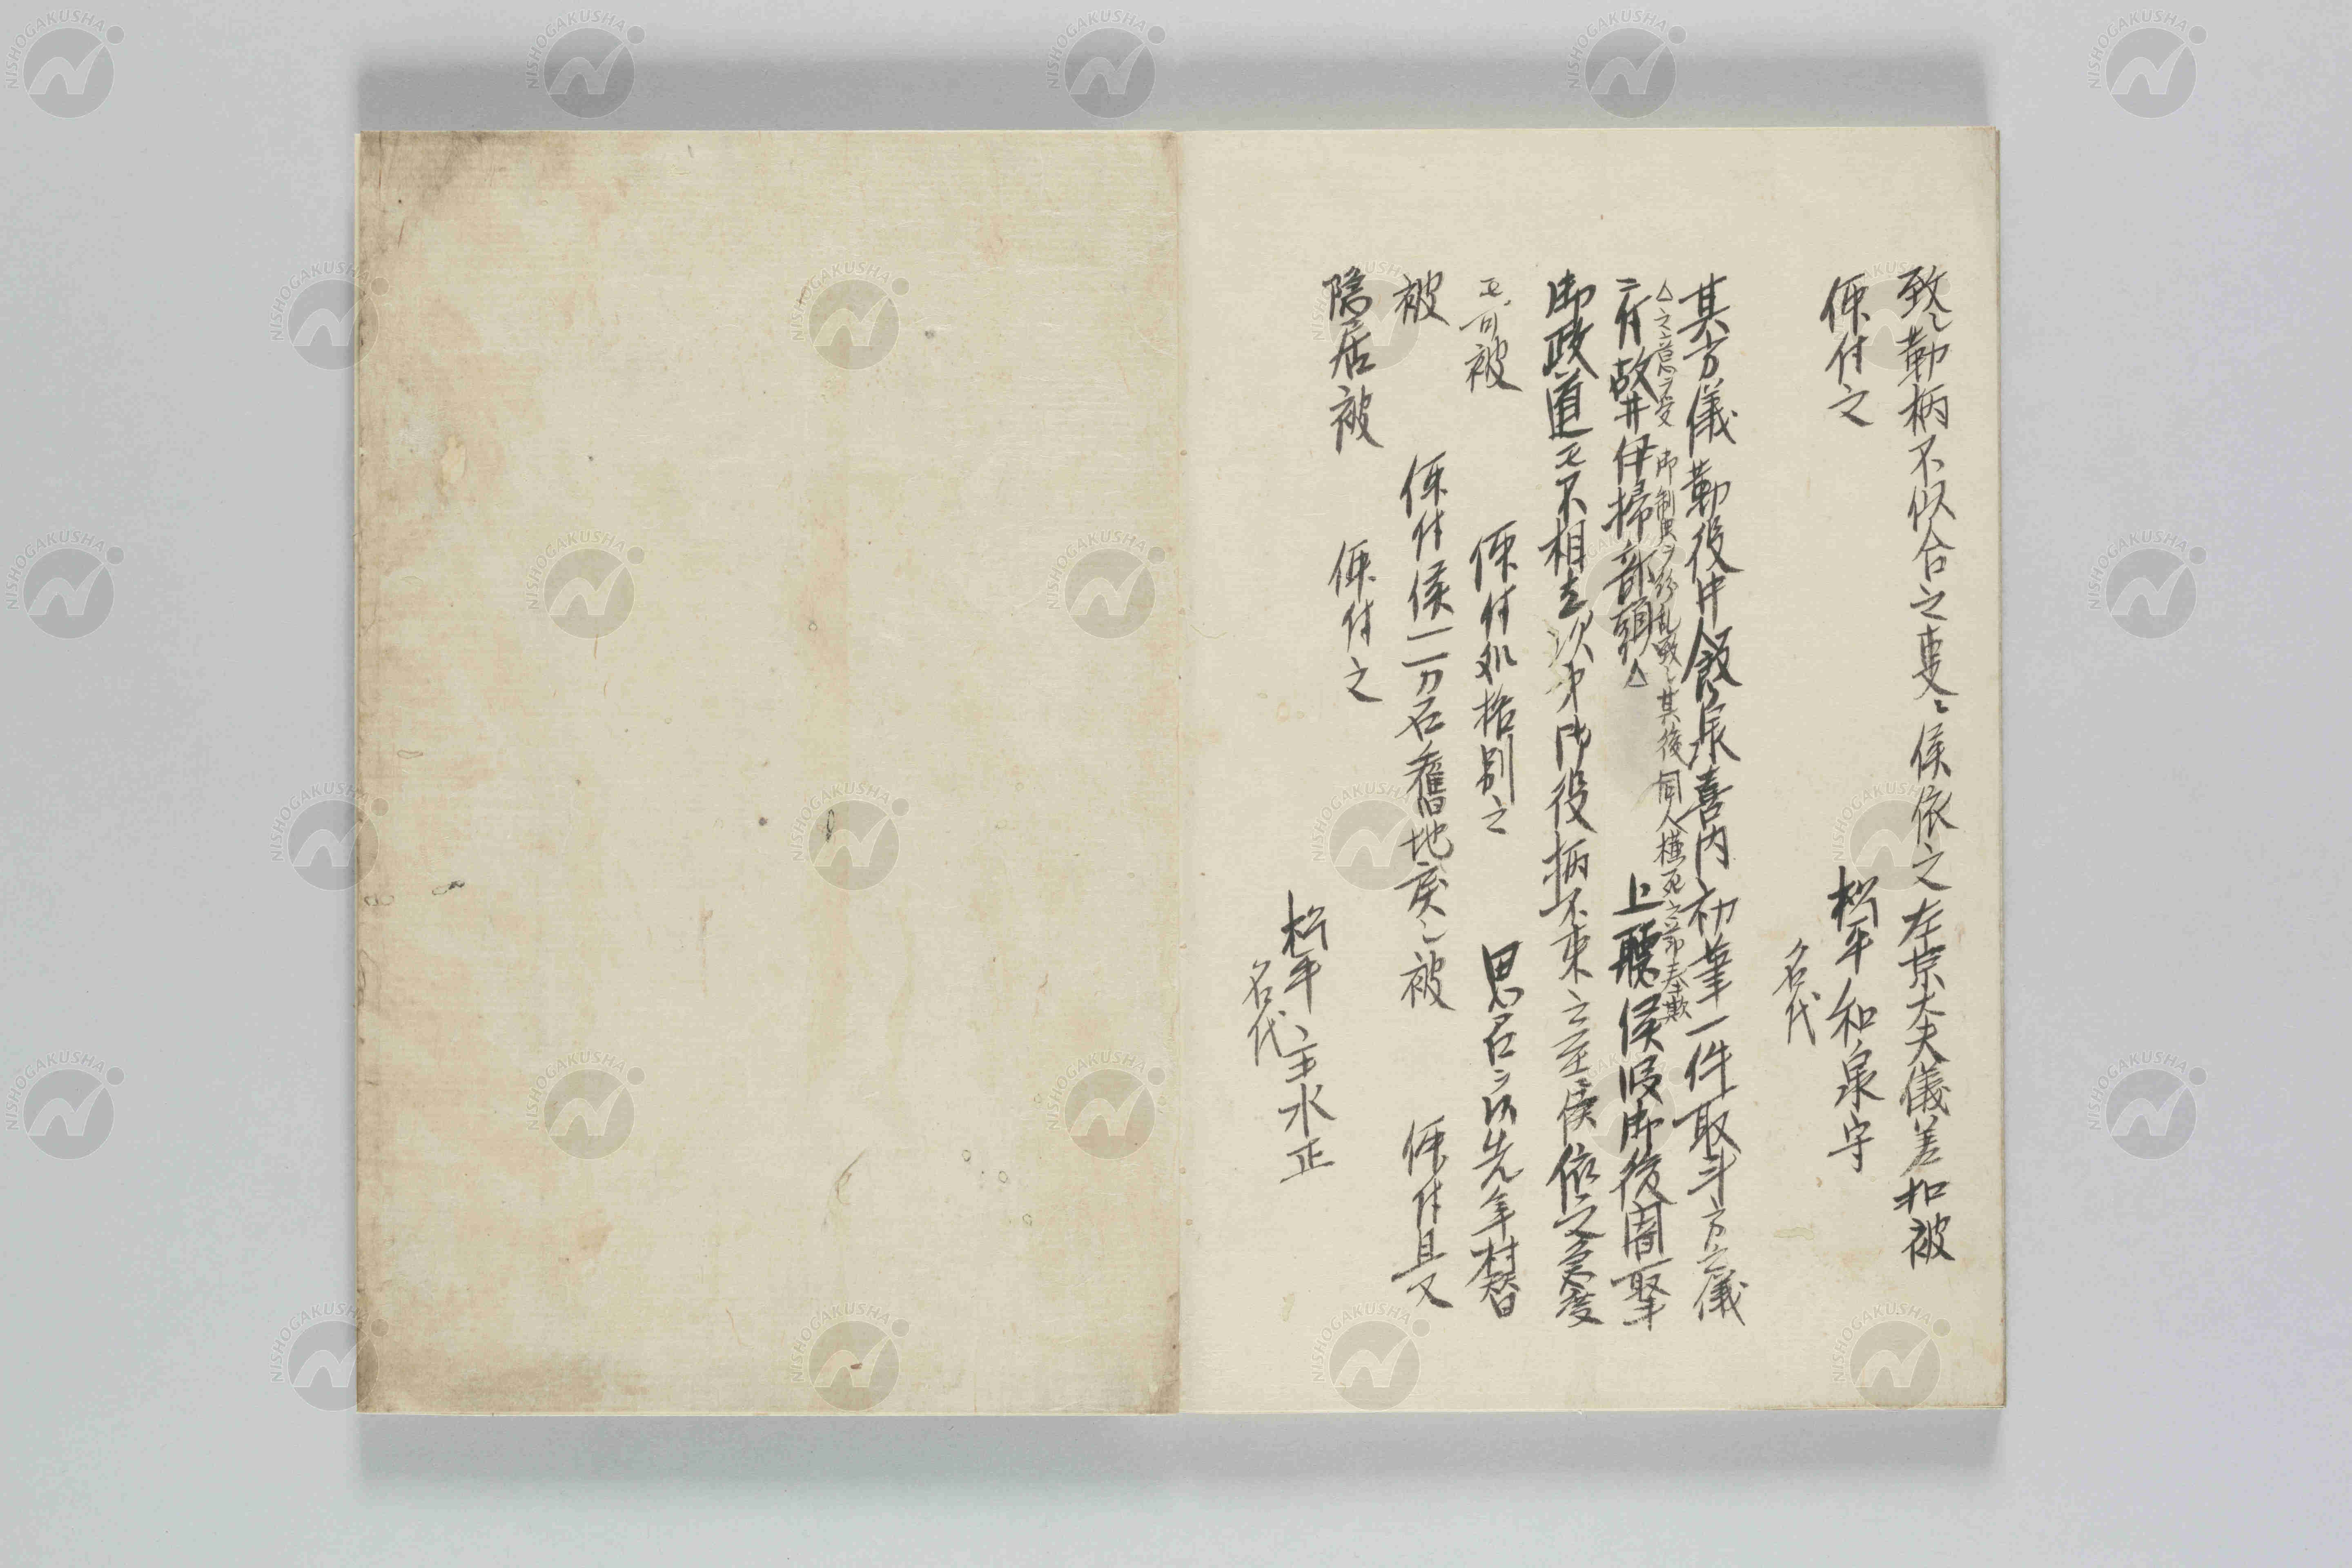 致シ勤柄不似合之事ニ候依之左京大夫儀差扣被
仰付之
松平和泉守
名代
其方儀勤役中飯泉喜内初筆一件取斗方之儀
△之意ヲ受 御制典ヲ紛乱致シ其後同人横死之節奉欺
ニ付故井伊掃部頭△ 上聽候段御後闇聊
御政道ニ不相立次第御役柄不束之至ニ候依之急度
モ可被 仰付処格別之 思召ヲ以先年村替
被 仰付候一万石舊地戻シ被 仰付且又
隠居被 仰付之
松平主水正
名代
NISHOGAKUSHA